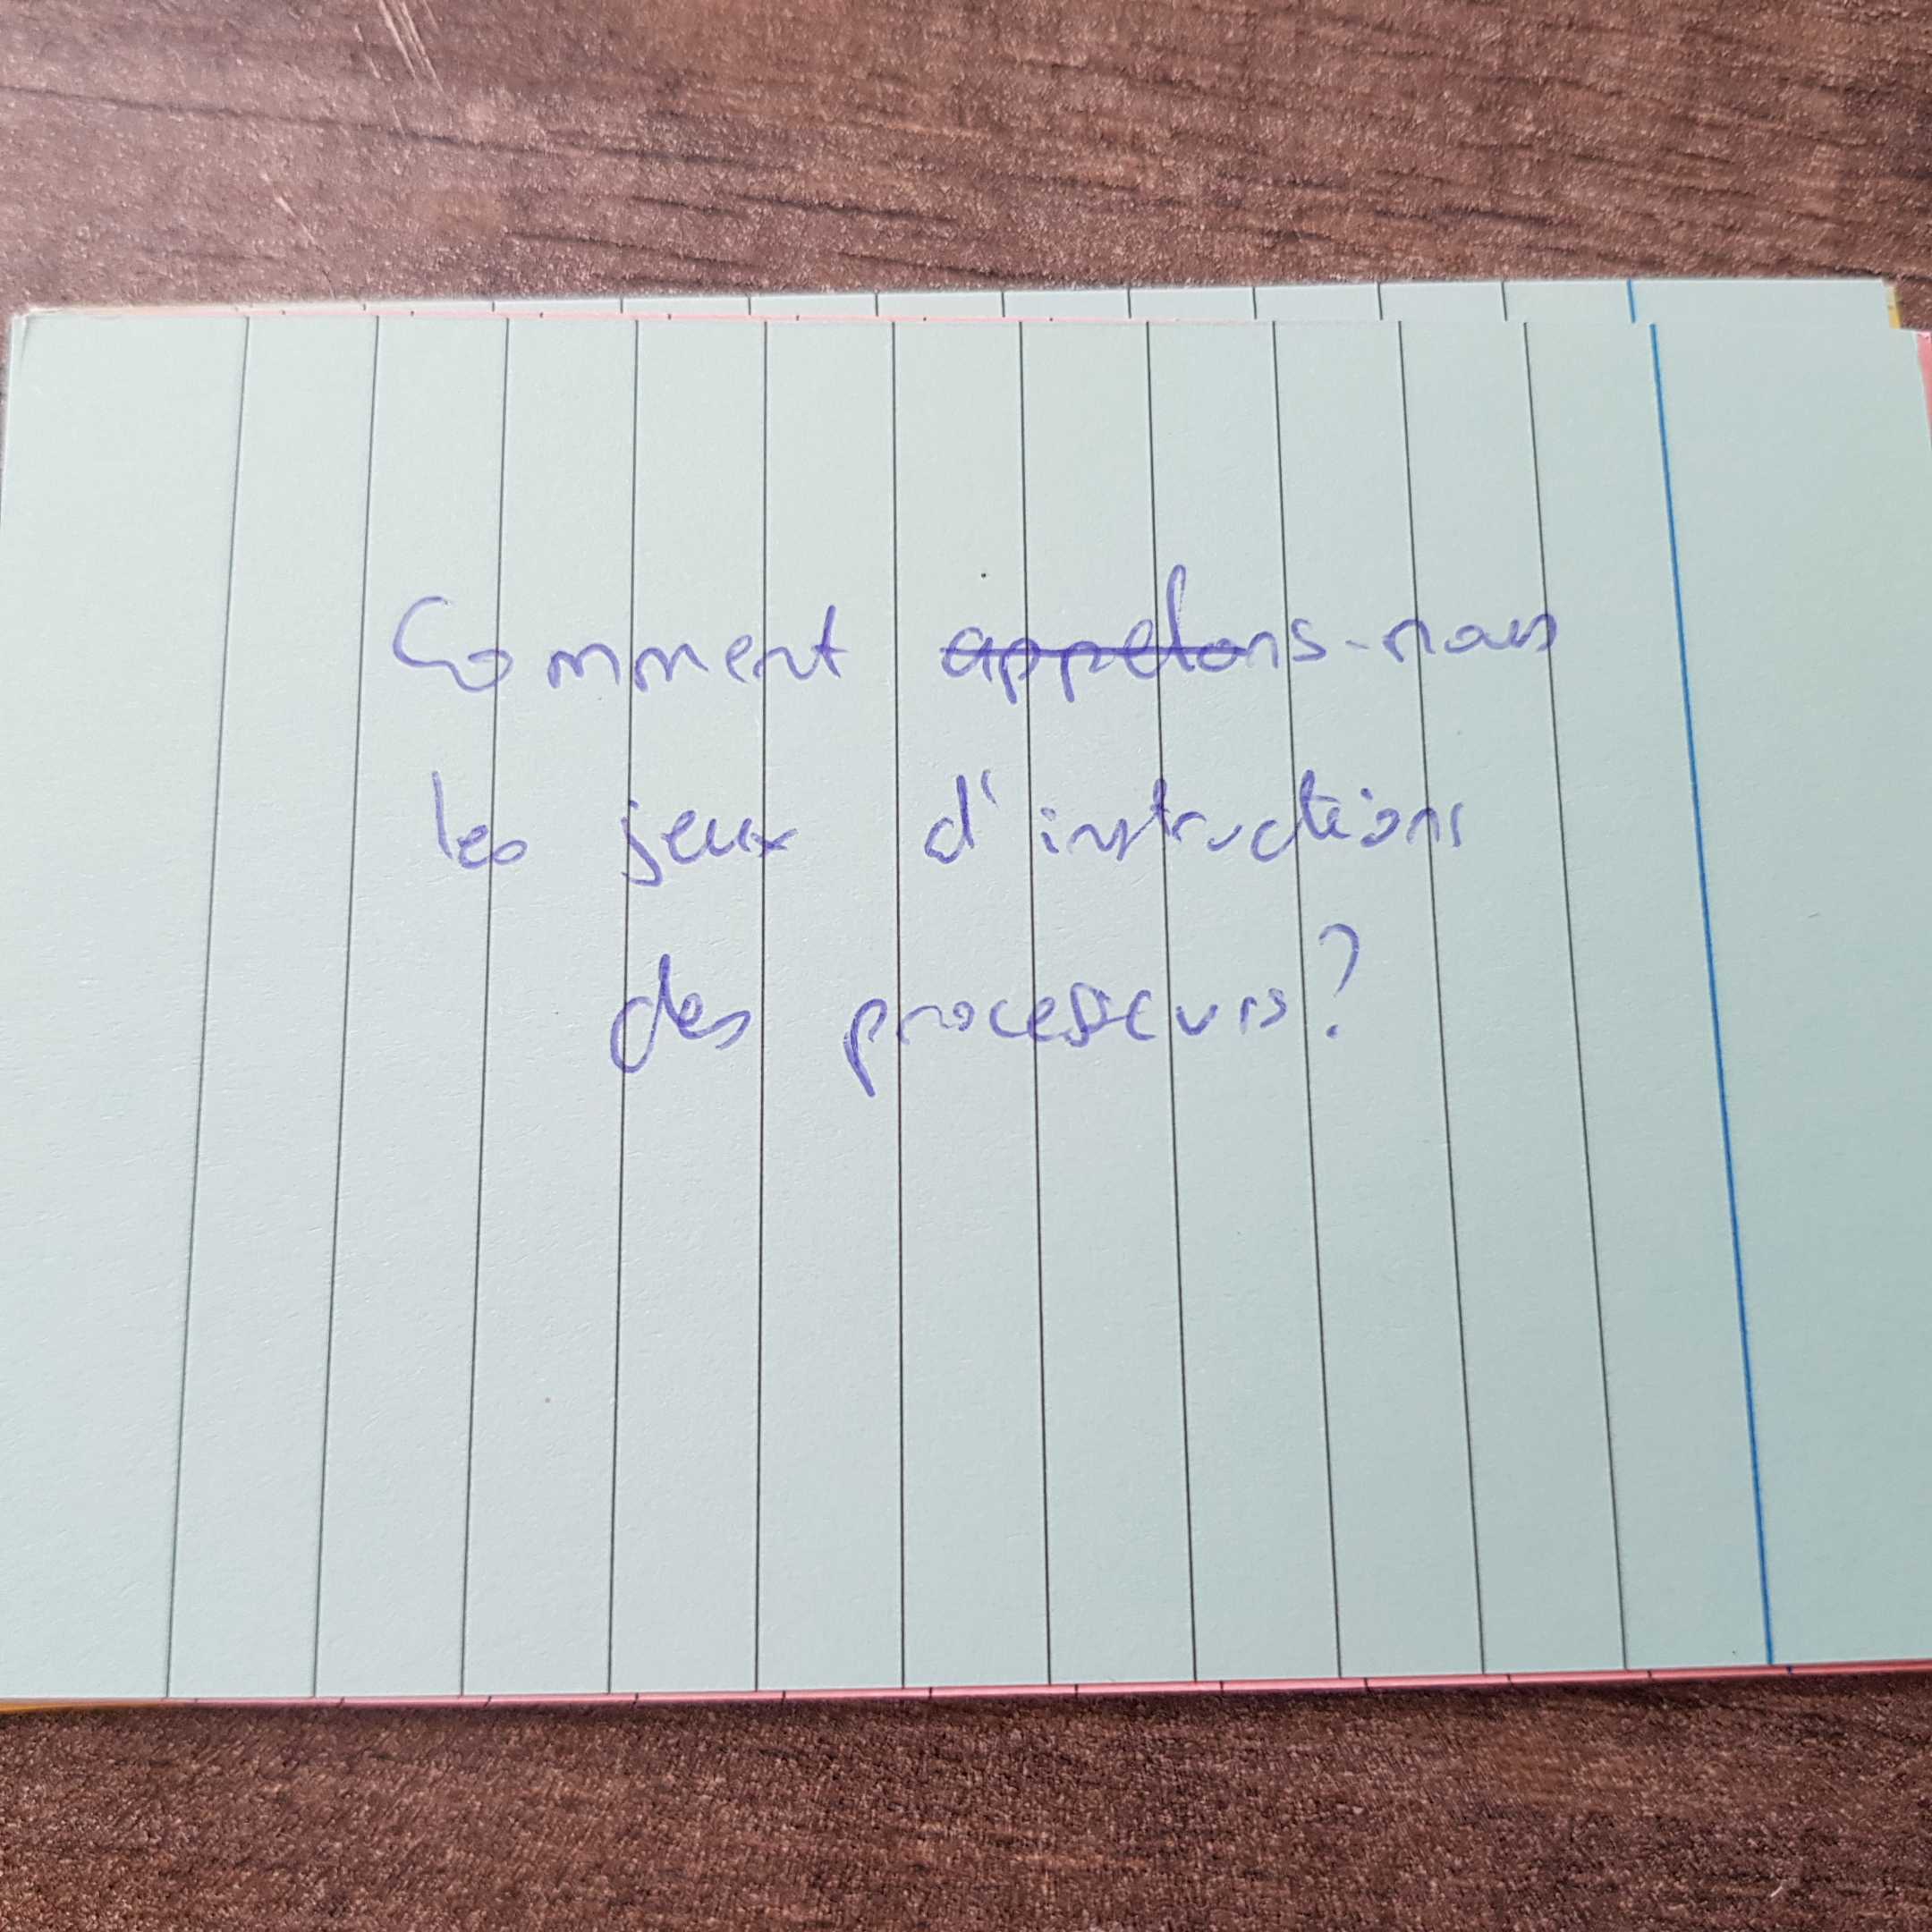 Comment appelons-nous
les jeux d'instructions
des processeurs?